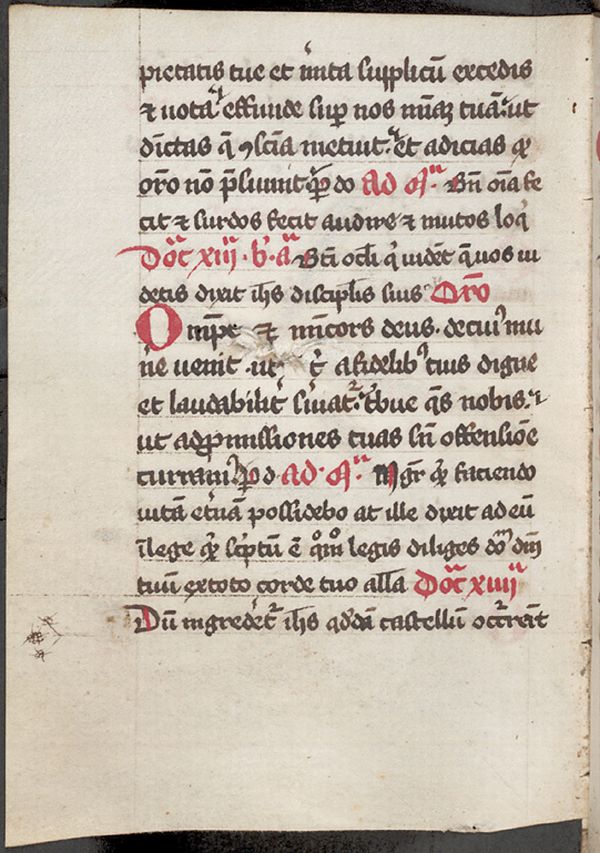 pietatis tue et m̅ita supplicu̅ excedis
⁊ uota effunde sup̅ nos mi̅am tua̅ ut
di̅ctas q̅ ꝯsci̅a metuit. et adicias qꝰ
or̅o no̅ p̅sumit ꝑ do ad m̅ Bn̅ oi̅a fe
cit ⁊ surdos fecit audire ⁊ mutos loqͥ
Do̅c xiij. b̅. a̅ Bt̅i ocl̅i qͥ uide̅t q̅ uos ui
detis dixit ih̅s discipl̅is suis Or̅o
Omp̅c ⁊ mi̅cors deus. de cuiꝰ mu
ne̅ uenit. ut tͥ a fidelibꝰ tuis digne
et laudabilit̅ s̅uiat̅. t̅bue q̅s nobis.
ut ad ꝓmissiones tuas sn̅ offensio̅e
curramꝰ. ꝑ d ad. m̅. Mgr̅ qͥ faciendo
uita̅ et̅na̅ possidebo at ille dixit ad eu̅
i̅ lege qͥ sc̅ptu̅ e̅ qͦmͦ legis diliges do̅m di̅m
tuu̅ ex toto corde tuo alla Do̅c xiiij
Du̅ ingredet̅ ih̅s qdda̅ castellu̅ occ̅rer̅t